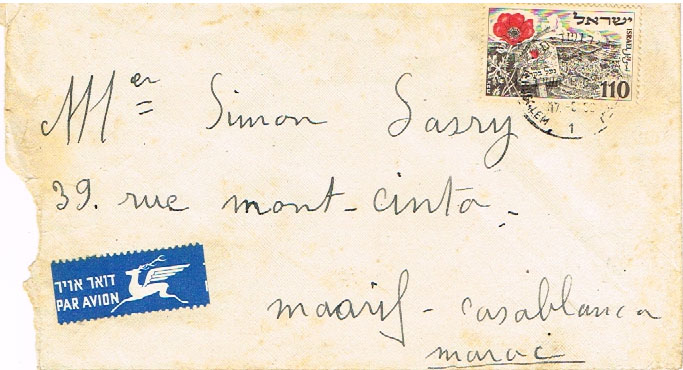 ישראל
ISRAEL
اسرائيل
110
1
Mer Simon Sasry
39. rue mont-cinto -
דואר אויר
PAR AVION
maarif - casablanca
maroc